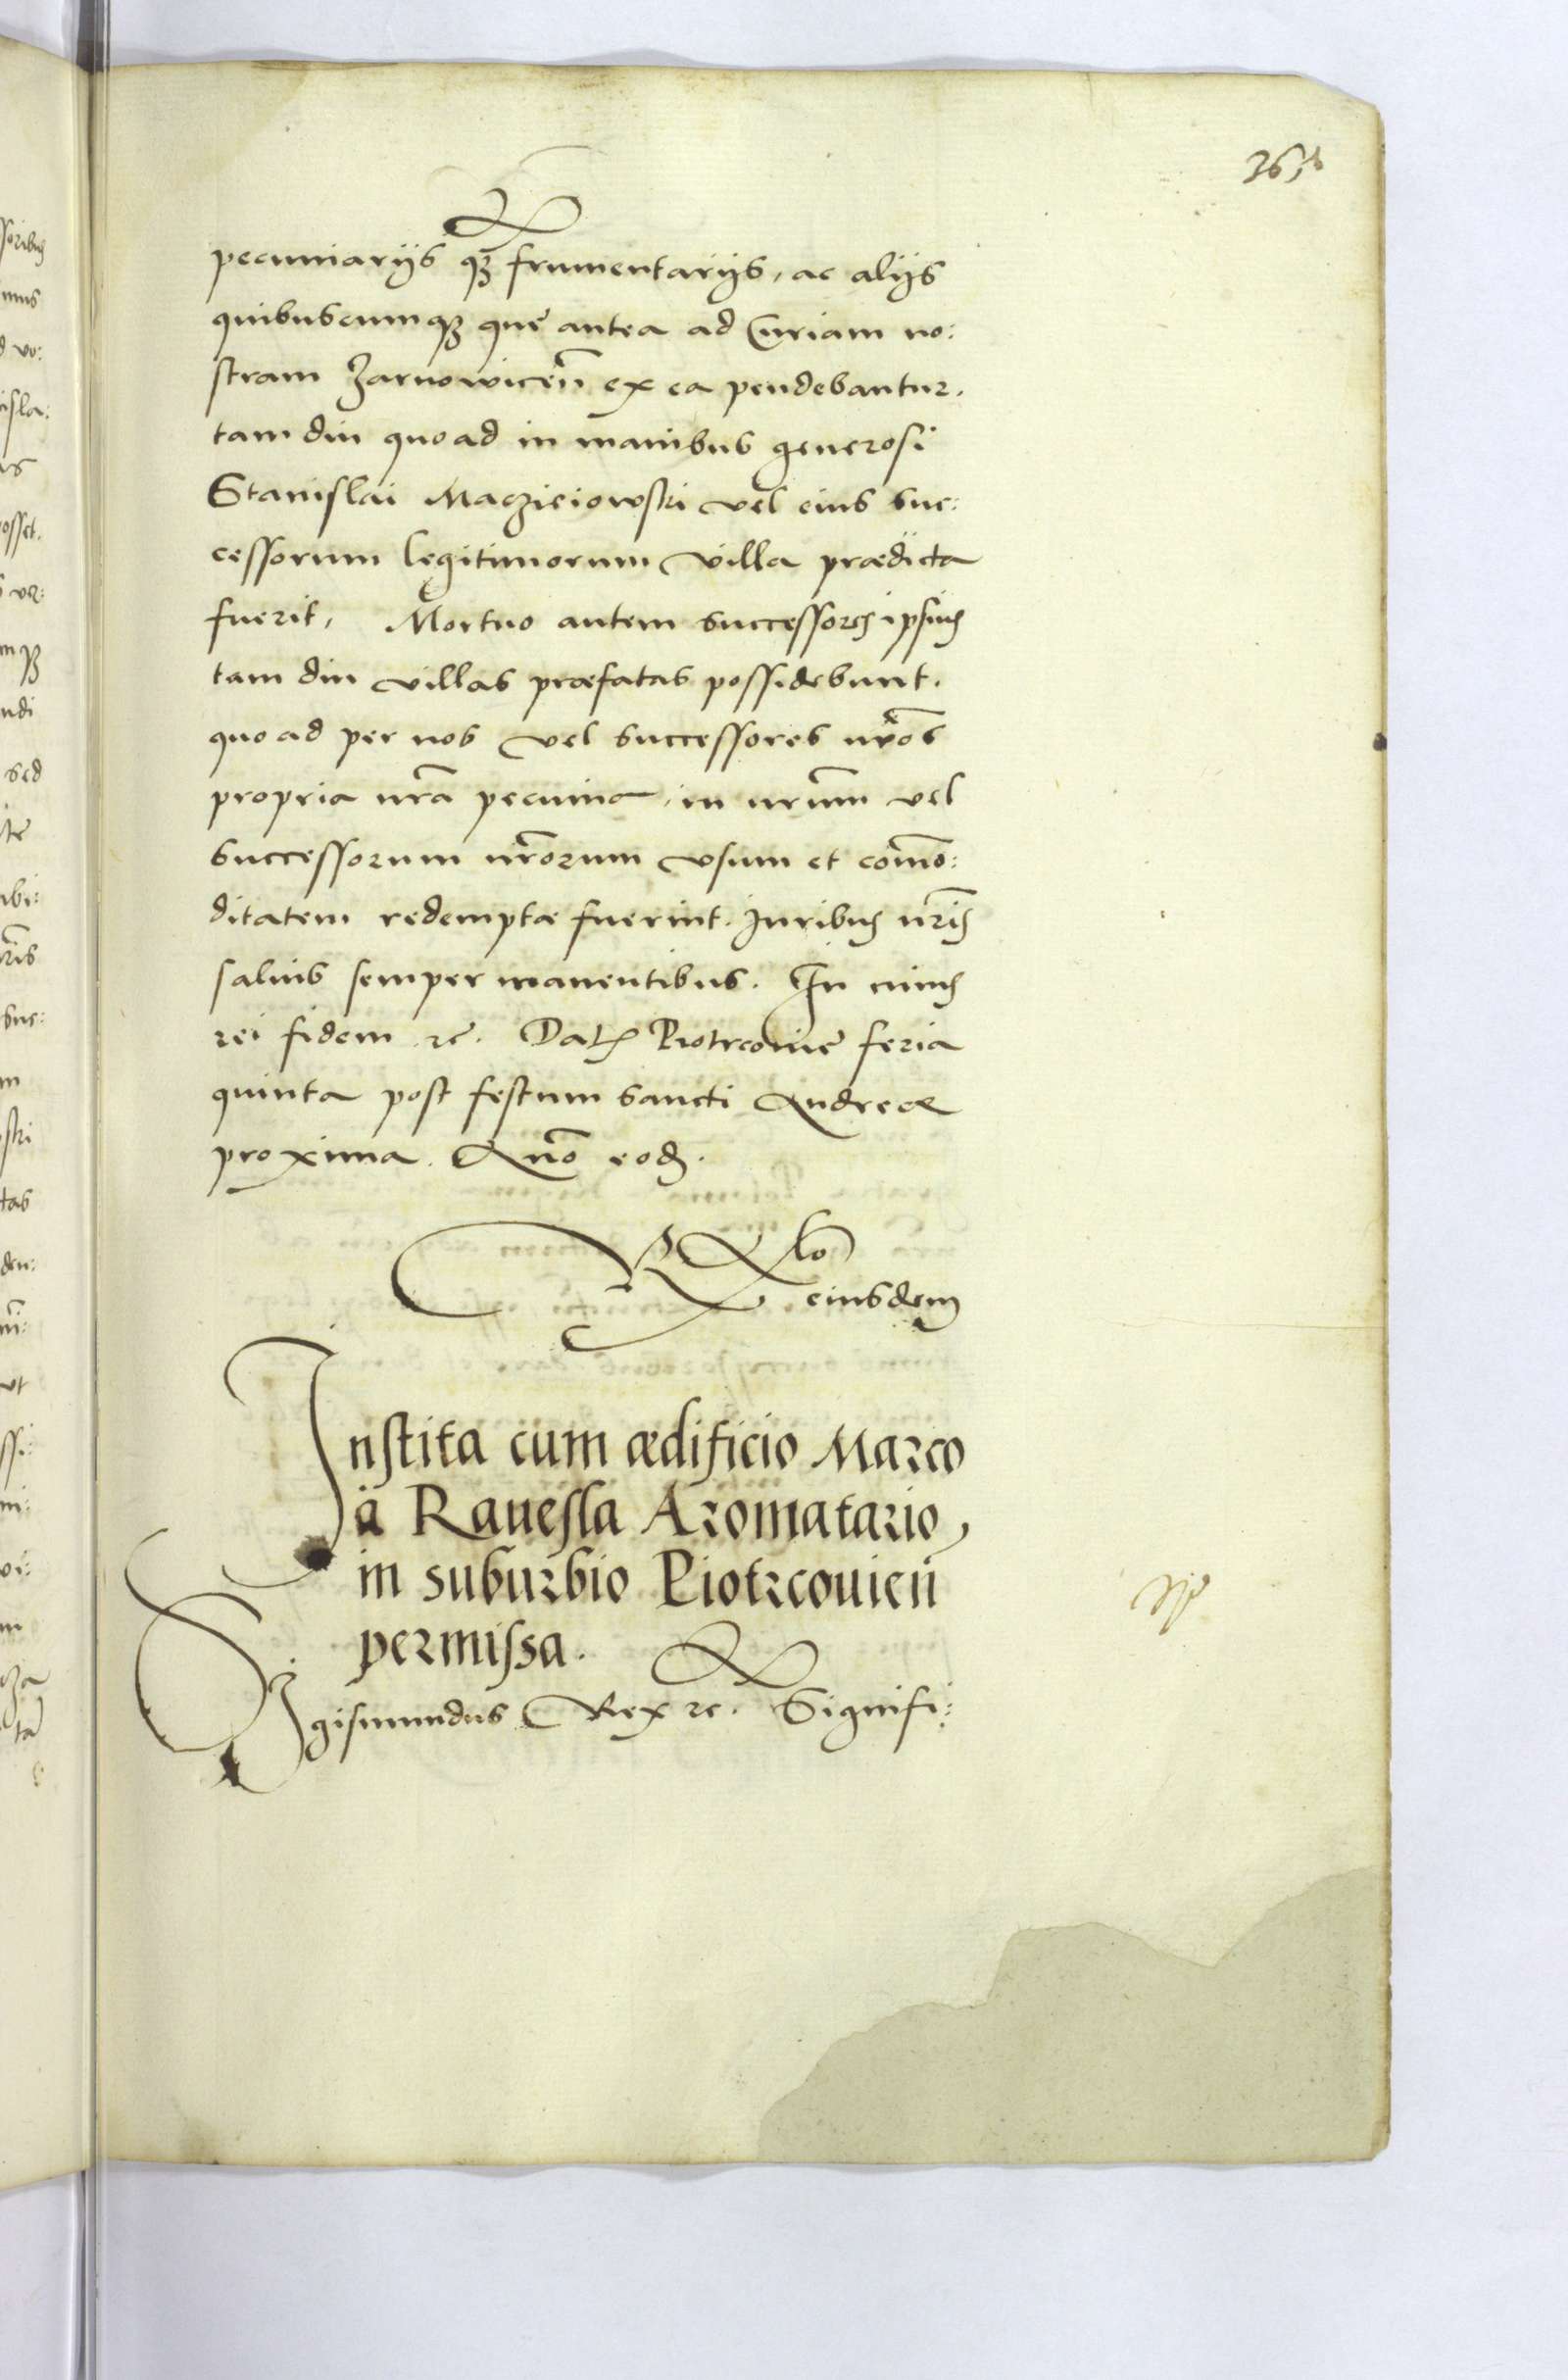 pecuniarijs qȝ frumentarijs, ac alijs
quibuscumqȝ que antea ad Curiam no:
stram Zarnowiceñ ex ea pendebantur.
tam diu quoad in manibus generosi
Stanislai Maczieiowski vel eius suc:
cessorum legitimorum villa prædicta
fuerit, Mortuo autem successores ipsius
tam diu villas præfatas possidebunt.
quo ad per nos vel successores nr̃os
propria nr̃a pecunia, in nr̃um vel
successorum nr̃orum vsum et com̃o:
ditatem redemptæ fuerint. Iuribus nr̃is
saluis semper manentibus. In cuius
rei fidem ꝛc. Dat Piotrcouie feria
quinta post festum sancti Andreæ
proxima. Año eod.
Rlo
eiusdem
Instita cum ædificio Marco
à Rauesla Aromatario,
in suburbio Piotrcouień
permissa.
Sigismundus Rex ꝛc. Signifi: